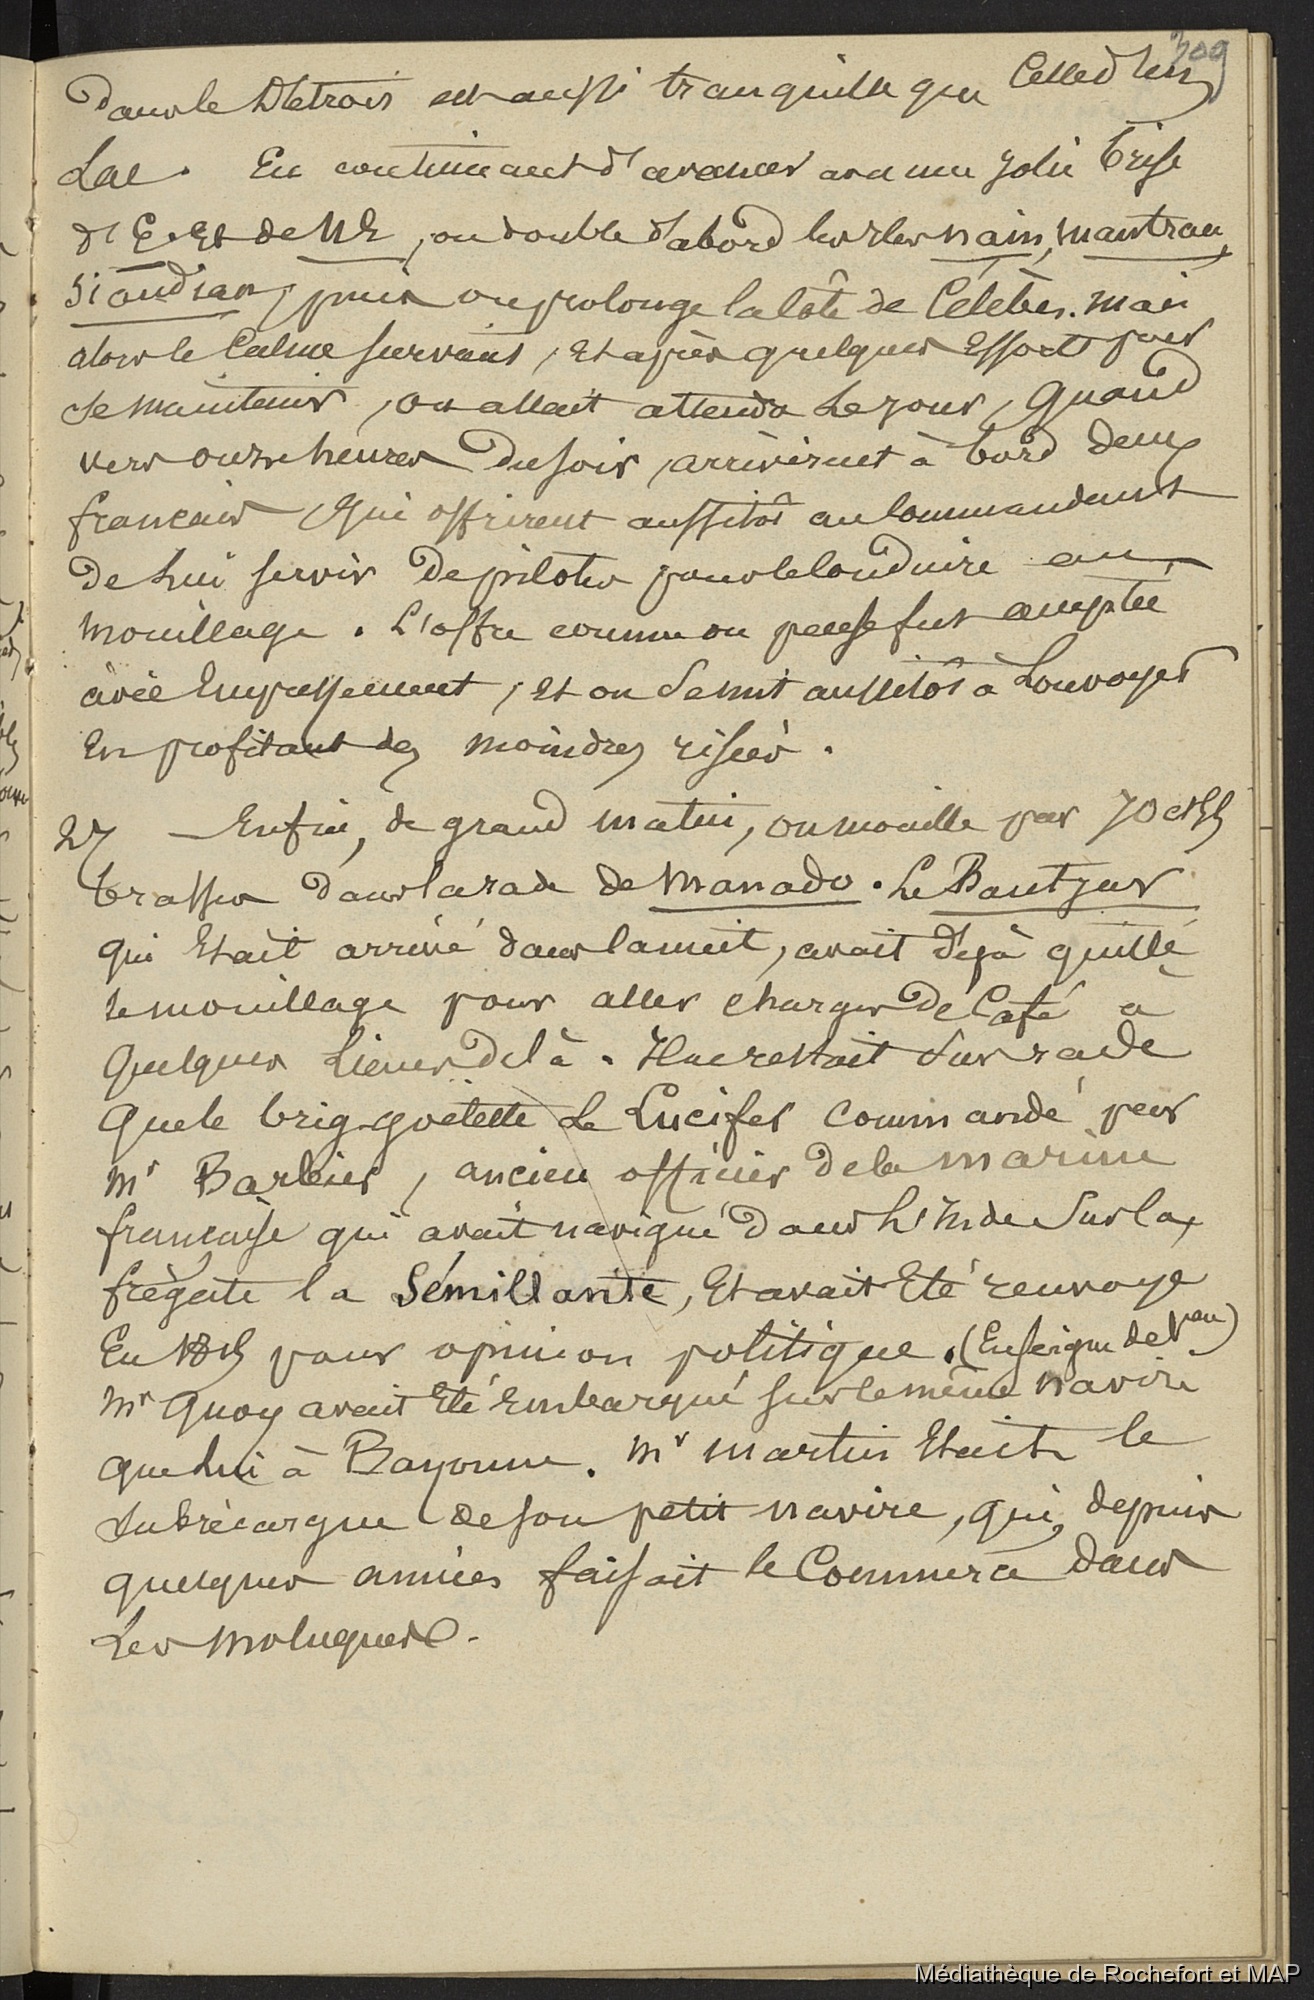 309
Dans le Détroit est aussi tranquille que Celle d'un
Lac. En continuant d'avancer avec une jolie brise
d'E. Et de NE, on double d'abord les îles nain, mantrau,
Siaudian, puis on prolonge la côte de Célèbes. Mais
alors le Calme survint, Et après quelques Efforts pour
se maintenir, on allait attendre le jour, Quand
vers onze heures du soir, arrivèrent à bord deux
français qui offrirent aussitôt au Commandant
de lui servir de pilotes pour le Conduire au
mouillage. L'offre comme on pense fut acceptée
avec Empressement, Et on se mit aussitôt à Louvoyer
En profitant des moindres risées.
27 — Enfin, de grand matin, on mouille par 70
brasses dans la rade de Manado. Le Bantjar
qui Etait arrivé dans la nuit, avait déjà quitté
le mouillage pour aller charger de Café à
Quelques Lieues de là. Il ne restait sur rade
que le brig-goëlette Le Lucifer commandé par
Mr Barbier, ancien officier de la marine
française qui avait navigué dans L'Inde sur la
frégate la Sémillante, Et avait Eté renvoyé
En 1815 pour opinion politique. (Enseigne de Veau)
Mr Quoy avait Eté Embarqué sur le même navire
que Lui à Bayonne. Mr Martin Etait le
subrécargue de son petit navire, qui, depuis
quelques années faisait le Commerce dans
Les Moluques.
Médiathèque de Rochefort et MAP